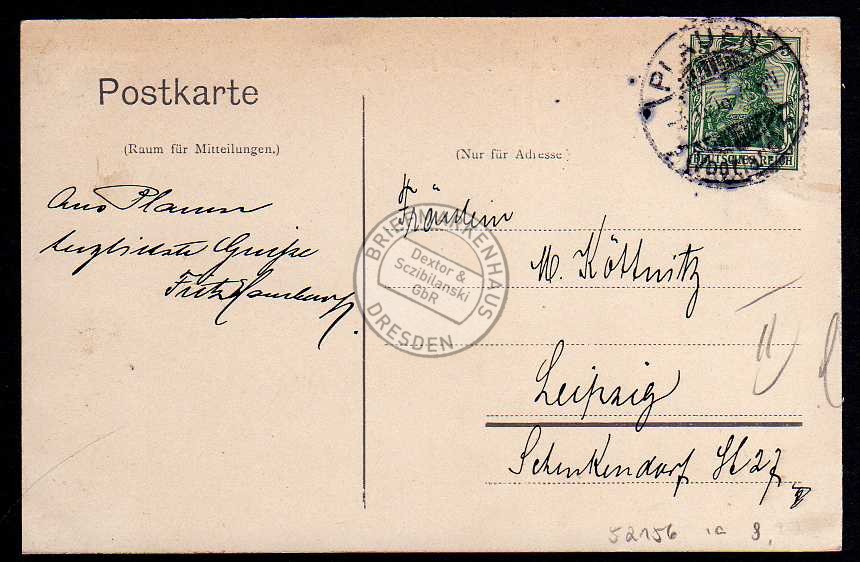 Postkarte
(Raum für Mitteilungen.)
(Nur für Adresse)
PLAUEN
(Vogtl.)
DEUTSCHES REICH
Aus Plauen
herzlichste Grüße
Fritz
Fräulein
M. Köttnitz
Leipzig
Schenkendorf St 27
II
BRIEFMARKENHAUS
Dextor &
Sczibilanski
GbR
DRESDEN
52156 1a 8,